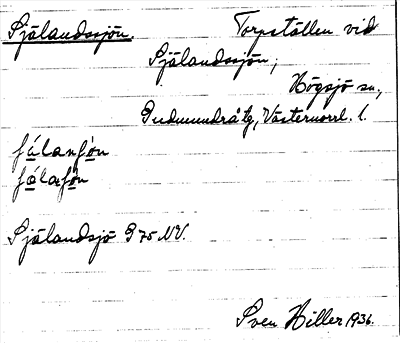 Själandssjön. Torpställen vid
Själandssjön;
Högsjö sn,
Gudmundrå tg, Västernorrl. l.
Själandsjö G 75 NV.
Sven Hiller 1936.